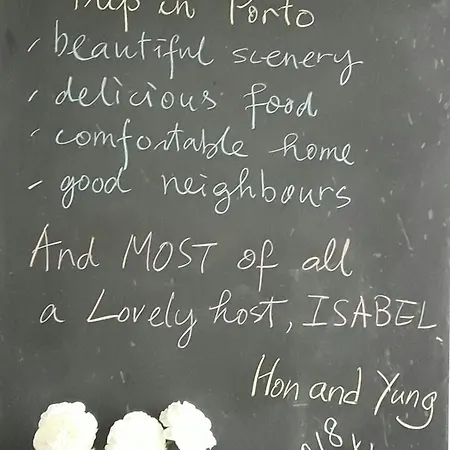 Trip in Porto
- beautiful scenery
- delicious food
- comfortable home
- good neighbours
And MOST of all
a Lovely host, ISABEL
Hon and Yung